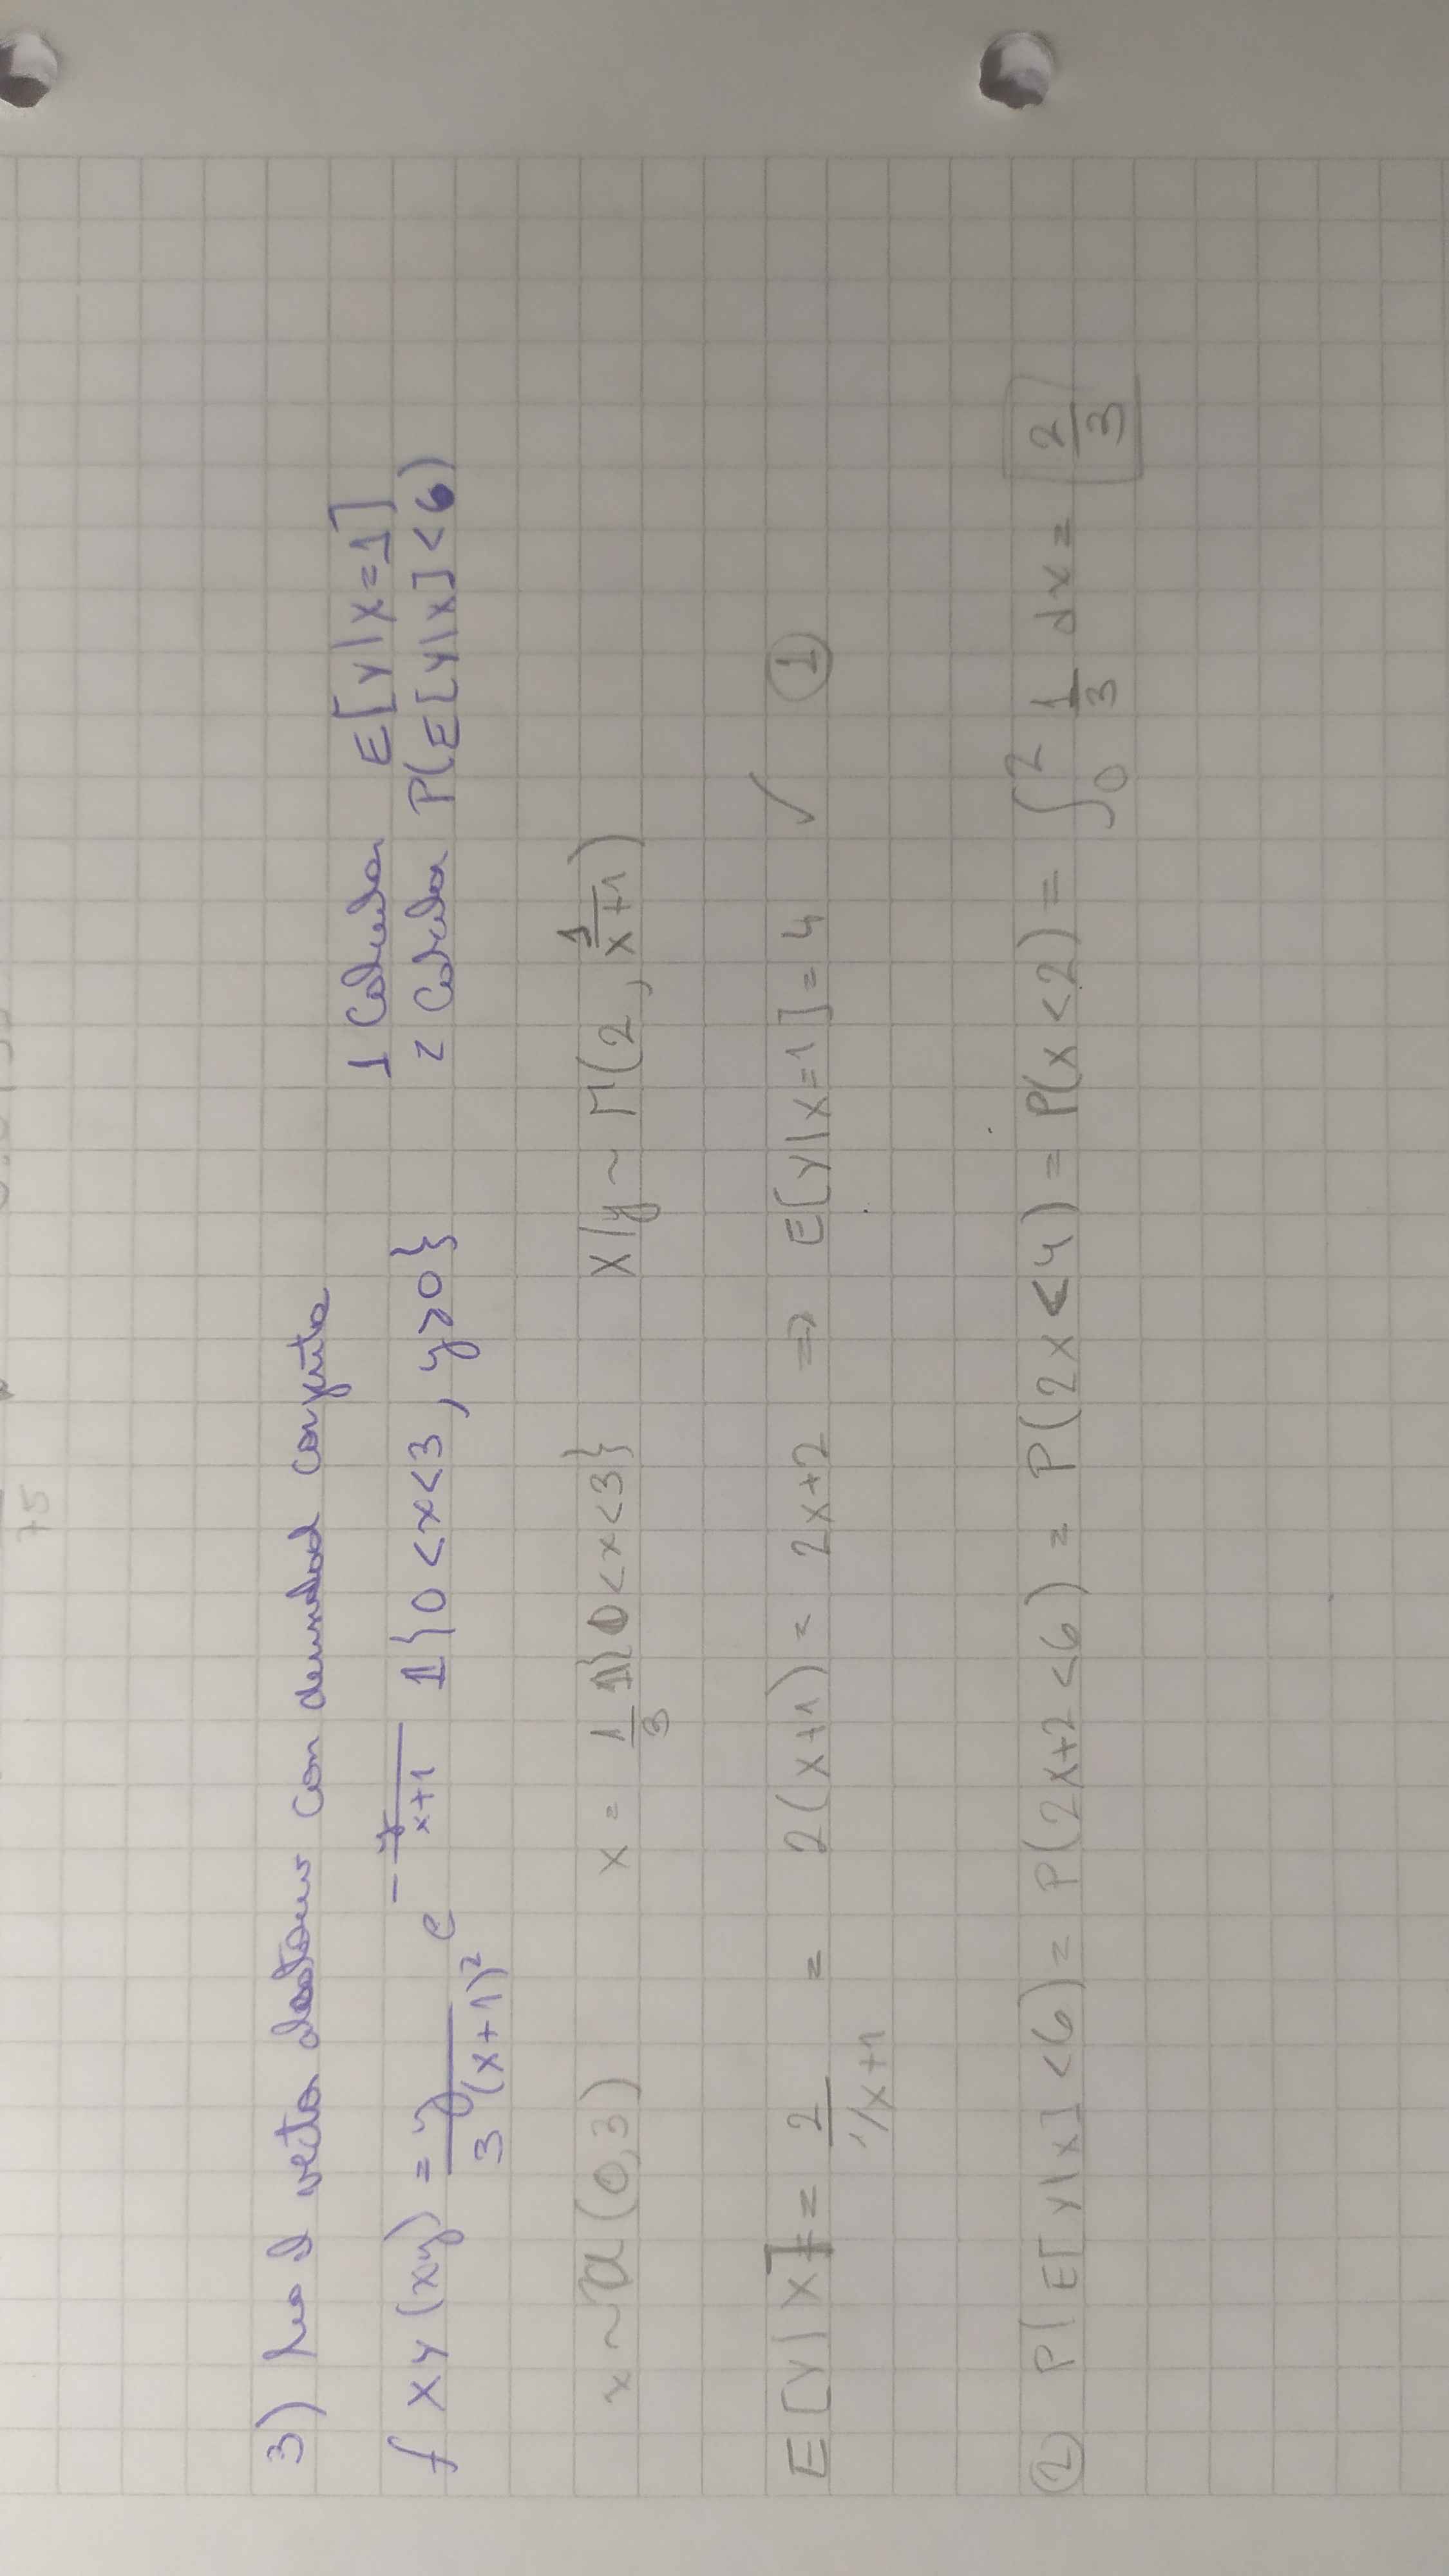 75
3) Sea el vector aleatorio con densidad conjunta
f XY (xy) = y/(3 (x+1)²) e^(-y/(x+1)) 1{0<x<3, y>0}
1 Calcular E[Y|X=1]
2 Calcular P(E[Y|X]<6)
x ~ U(0,3) x = 1/3 1{0<x<3} X/y ~ Γ(2, 1/(x+1))
E[Y|X] = 2/(1/x+1) = 2(x+1) = 2x+2 ⇒ E[Y|X=1] = 4 ✓ ①
② P(E[Y|X]<6) = P(2x+2<6) = P(2x<4) = P(x<2) = ∫₀² 1/3 dx = 2/3